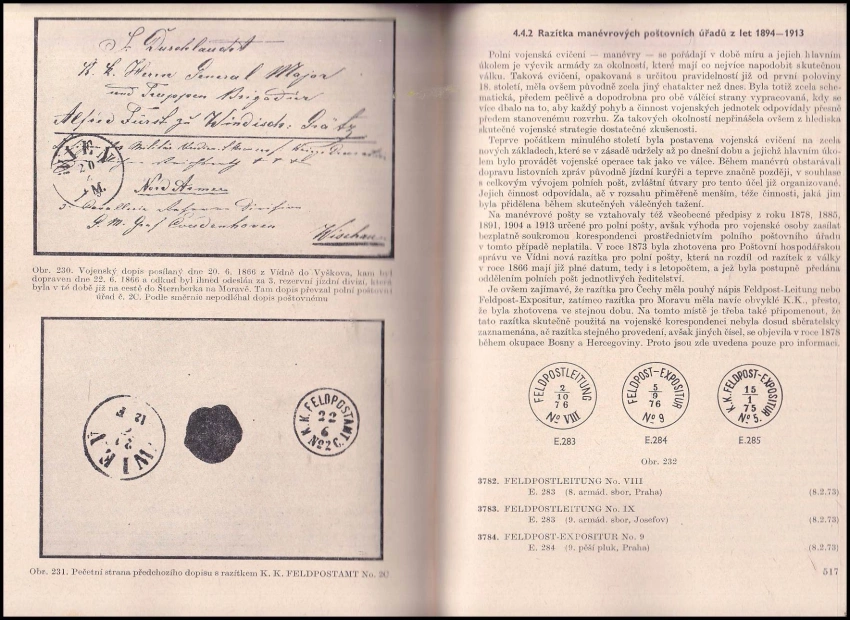 S. Durchlaucht
K. k. Herrn General Major
und Truppen Brigadier
Alfred Fürst zu Windisch-Grätz
WIEN
20
M.
Nord Armee
3. Cavallerie Reserve Division
G. M. Graf Coudenhoven
Wischau
Obr. 230. Vojenský dopis posílaný dne 20. 6. 1866 z Vídně do Vyškova, kam byl
dopraven dne 22. 6. 1866 a odkud byl ihned odeslán za 3. rezervní jízdní divizí, která
byla v té době již na cestě do Šternberka na Moravě. Tam dopis převzal polní poštovní
úřad č. 2C. Podle směrnic nepodléhal dopis poštovnému
WIEN
K.K. FELDPOSTAMT
22
6
No 2 C.
Obr. 231. Pečetní strana předchozího dopisu s razítkem K. K. FELDPOSTAMT No. 2C
4.4.2 Razítka manévrových poštovních úřadů z let 1894—1913
Polní vojenská cvičení — manévry — se pořádají v době míru a jejich hlavním
úkolem je výcvik armády za okolností, které mají co nejvíce napodobit skutečnou
válku. Taková cvičení, opakovaná s určitou pravidelností již od první poloviny
18. století, měla ovšem původně zcela jiný charakter než dnes. Byla totiž zcela sche-
matická, předem pečlivě a dopodrobna pro obě válčící strany vypracovaná, kdy se
více dbalo na to, aby každý pohyb a činnost vojenských jednotek odpovídaly přesně
předem stanovenému rozvrhu. Za takových okolností nepřinášela ovšem z hlediska
skutečné vojenské strategie dostatečné zkušenosti.
Teprve počátkem minulého století byla postavena vojenská cvičení na zcela
nových základech, které se v zásadě udržely až po dnešní dobu a jejichž hlavním úko-
lem bylo provádět vojenské operace tak jako ve válce. Během manévrů obstarávali
dopravu listovních zpráv původně jízdní kurýři a teprve značně později, v souhlase
s celkovým vývojem polních pošt, zvláštní útvary pro tento účel již organizované.
Jejich činnost odpovídala, ač v rozsahu přiměřeně menším, téže činnosti, jaká jim
byla přidělena během skutečných válečných tažení.
Na manévrové pošty se vztahovaly též všeobecné předpisy z roku 1878, 1885,
1891, 1904 a 1913 určené pro polní pošty, avšak výhoda pro vojenské osoby zasílat
bezplatně soukromou korespondenci prostřednictvím polního poštovního úřadu
v tomto případě neplatila. V roce 1873 byla zhotovena pro Poštovní hospodářskou
správu ve Vídni nová razítka pro polní pošty, která na rozdíl od razítek z války
v roce 1866 mají již plné datum, tedy i s letopočtem, a jež byla postupně předána
oddělením polních pošt jednotlivých ředitelství.
Je ovšem zajímavé, že razítka pro Čechy měla pouhý nápis Feldpost-Leitung nebo
Feldpost-Expositur, zatímco razítka pro Moravu měla navíc obvyklé K.K., přesto,
že byla zhotovena ve stejnou dobu. Na tomto místě je třeba také připomenout, že
tato razítka skutečně použitá na vojenské korespondenci nebyla dosud sběratelsky
zaznamenána, ač razítka stejného provedení, avšak jiných čísel, se objevila v roce 1878
během okupace Bosny a Hercegoviny. Proto jsou zde uvedena pouze pro informaci.
FELDPOSTLEITUNG
2
10
76
No VIII
E.283
FELDPOST-EXPOSITUR
5
9
76
No 9
E.284
K.K. FELDPOST-EXPOSITUR
15
1
75
No 5.
E.285
Obr. 232
3782. FELDPOSTLEITUNG No. VIII
E. 283 (8. armád. sbor, Praha) (8.2.73)
3783. FELDPOSTLEITUNG No. IX
E. 283 (9. armád. sbor, Josefov) (8.2.73)
3784. FELDPOST-EXPOSITUR No. 9
E. 284 (9. pěší pluk, Praha) (8.2.73)
517